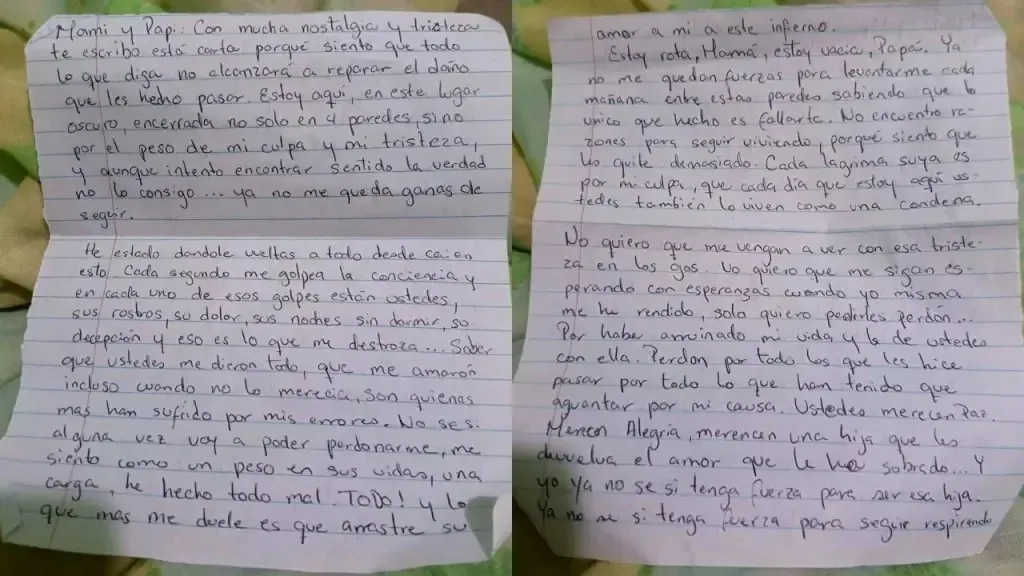 Mami y Papi: Con mucha nostalgia y tristeza
te escribo está carta porqué siento que todo
lo que diga no alcanzará a reparar el daño
que les hecho pasar. Estoy aquí, en este lugar
oscuro, encerrada no solo en 4 paredes, sino
por el peso de mi culpa y mi tristeza,
y aunque intento encontrar sentido la verdad
no lo consigo... ya no me queda ganas de
seguir.
He estado dandole vueltas a todo desde caí en
esto Cada segundo me golpea la conciencia y
en cada uno de esos golpes están ustedes,
sus rostros, su dolor, sus noches sin dormir, su
decepción y eso es lo que me destroza... Saber
que ustedes me dieron todo, que me amarón
incluso cuando no lo merecía, son quienes
mas han sufrido por mis errores. No se si
alguna vez voy a poder perdonarme, me
siento como un peso en sus vidas, una
carga, he hecho todo mal. TODO! y lo
que mas me duele es que arrastre su
amor a mi a este infierno.
Estoy rota, Mamá, estoy vacia, Papá. Ya
no me quedan fuerzas para levantarme cada
mañana entre estas paredes sabiendo que lo
unico que hecho es fallarte. No encuentro ra-
zones para seguir viviendo, porqué siento que
les quite demasiado. Cada lagrima suya es
por mi culpa, que cada día que estoy aquí us-
tedes también lo viven como una condena.
No quiero que me vengan a ver con esa triste-
za en los ojos. No quiero que me sigan es-
perando con esperanzas cuando yo misma
me he rendido, solo quiero pedirles perdón...
Por haber arruinado mi vida y la de ustedes
con ella. Perdon por todo los que les hice
pasar por todo lo que han tenido que
aguantar por mi causa. Ustedes merecen Paz.
Merecen Alegria, merencen una hija que les
devuelva el amor que le ha sobrado... Y
yo ya no se si tenga fuerza para ser esa hija.
Ya no se si tenga fuerza para seguir respirando